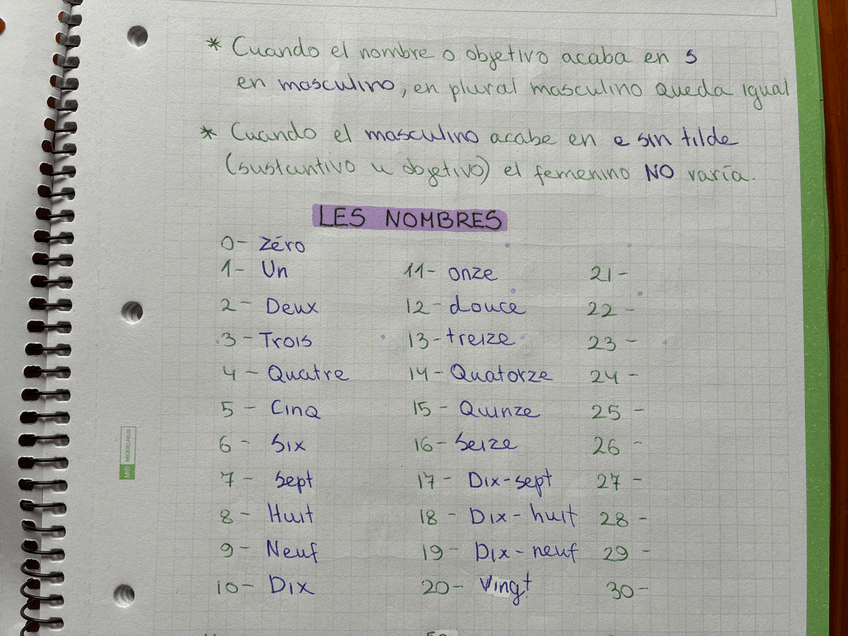 * Cuando el nombre o objetivo acaba en s
en masculino, en plural masculino queda igual
* Cuando el masculino acabe en e sin tilde
(sustantivo u objetivo) el femenino NO varía.
LES NOMBRES
0- Zéro
1- Un 11- onze 21-
2- Deux 12- douce 22-
3- Trois 13- treize 23-
4- Quatre 14- Quatorze 24-
5- Cinq 15- Quinze 25-
6- Six 16- Seize 26-
7- Sept 17- Dix-sept 27-
8- Huit 18- Dix-huit 28-
9- Neuf 19- Dix-neuf 29-
10- Dix 20- Vingt 30-